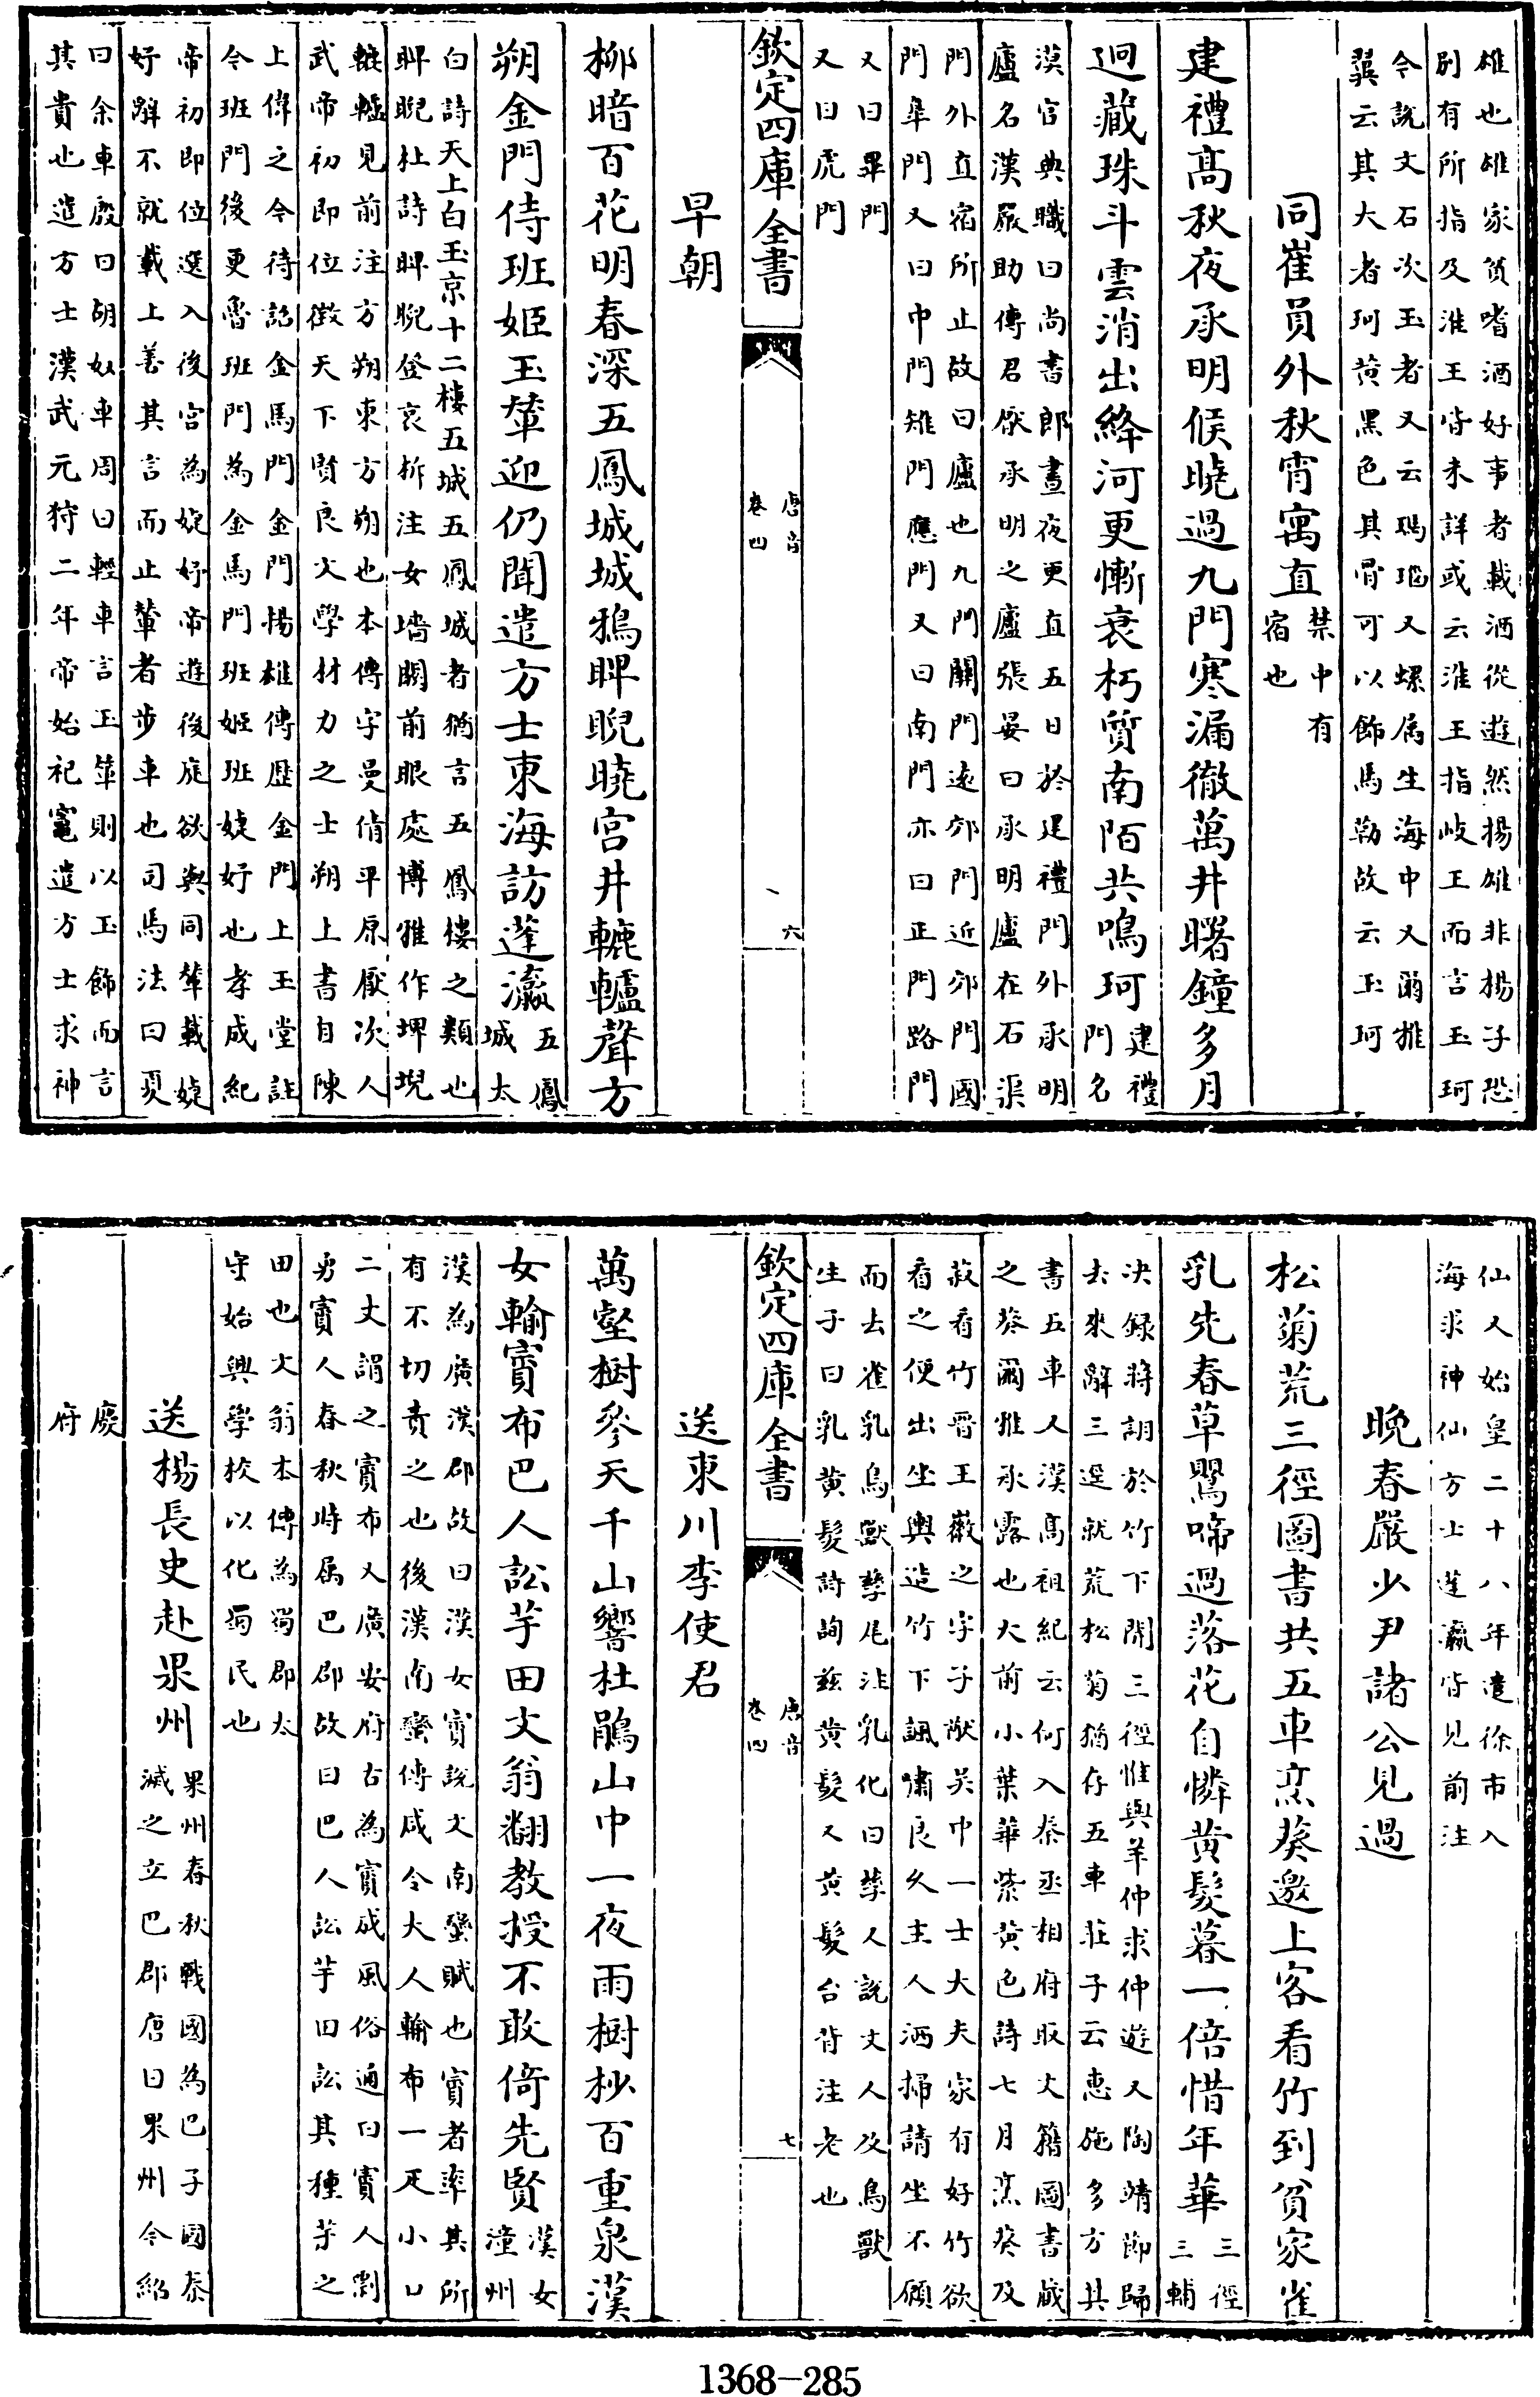 雄也雄家貧嗜酒好事者載酒從遊然楊雄非楊子恐
別有所指及淮王皆未詳或云淮王指岐王而言玉珂
令說文石次玉者又云瑪瑙又螺属生海中又爾雅
翼云其大者珂黄黒色其骨可以飾馬勒故云玉珂
同崔員外秋宵寓直禁中有
宿也
建禮髙秋夜承明候曉過九門寒漏徹萬井曙鐘多月
迥藏珠斗雲消出絳河更慚衰朽質南陌共鳴珂建禮
門名
漢官典職曰尚書郎晝夜更直五日於建禮門外承明
廬名漢嚴助傳君厭承明之廬張晏曰承明廬在石渠
門外直宿所止故曰廬也九門關門逺郊門近郊門國
門臯門又曰中門雉門應門又曰南門亦曰正門路門
又曰畢門
又曰虎門
欽定四庫全書
唐音
卷四
六
早朝
柳暗百花明春深五鳳城城鴉睥睨曉宫井轆轤聲方
朔金門侍班姬玉輦迎仍聞遣方士東海訪蓬瀛五鳳
城太
白詩天上白玉京十二樓五城五鳳城者猶言五鳳樓之類也
睥睨杜詩睥睨登哀柝注女墻闕前眼處博雅作埤堄
轆轤見前注方朔東方朔也本傳字曼倩平原厭次人
武帝初即位徴天下賢良文學材力之士朔上書自陳
上偉之令待詔金馬門金門楊雄傳歴金門上玉堂註
令班門後更魯班門為金馬門班姬班婕妤也孝成紀
帝初即位選入後宫為婕妤帝遊後庭欲與同輦載婕
妤辭不就載上善其言而止輦者步車也司馬法曰夏
曰余車殷曰胡奴車周曰輕車言玉輦則以玉飾而言
其貴也遣方士漢武元狩二年帝始祀竈遣方士求神
仙又始皇二十八年遣徐市入
海求神仙方士蓬瀛皆見前注
晩春嚴少尹諸公見過
松菊荒三徑圖書共五車烹葵邀上客看竹到貧家雀
乳先春草鸎啼過落花自憐黄髮暮一倍惜年華三徑
三輔
决録蔣詡於竹下開三徑惟與羊仲求仲遊又陶靖節歸
去來辭三逕就荒松菊猶存五車莊子云惠施多方其
書五車又漢髙祖紀云何入秦丞相府取文籍圖書藏
之葵爾雅承露也大莭小葉華紫黄色詩七月烹葵及
菽看竹晉王徽之字子猷吴中一士大夫家有好竹欲
看之便出坐輿造竹下諷嘯良久主人洒掃請坐不顧
而去雀乳鳥獸孳尾注乳化曰孳人說文人及鳥獸
生子曰乳黄髮詩詢兹黄髮又黄髮台背注老也
欽定四庫全書
唐音
卷四
七
送東川李使君
萬壑樹參天千山響杜鵑山中一夜雨樹杪百重泉漢
女輸賨布巴人訟芋田文翁翻教授不敢倚先賢漢女
潼州
漢為廣漢郡故曰漢女賨說文南蠻賦也賨者率其所
有不切責之也後漢南蠻傳咸令大人輸布一疋小口
二丈謂之賨布又廣安府古為賨成風俗通曰賨人剽
勇賨人春秋時属巴郡故曰巴人訟芋田訟其種芋之
田也文翁本傳為蜀郡太
守始興學校以化蜀民也
送楊長史赴果州果州春秋戰國為巴子國秦
滅之立巴郡唐曰果州今紹
慶
府
1368-285